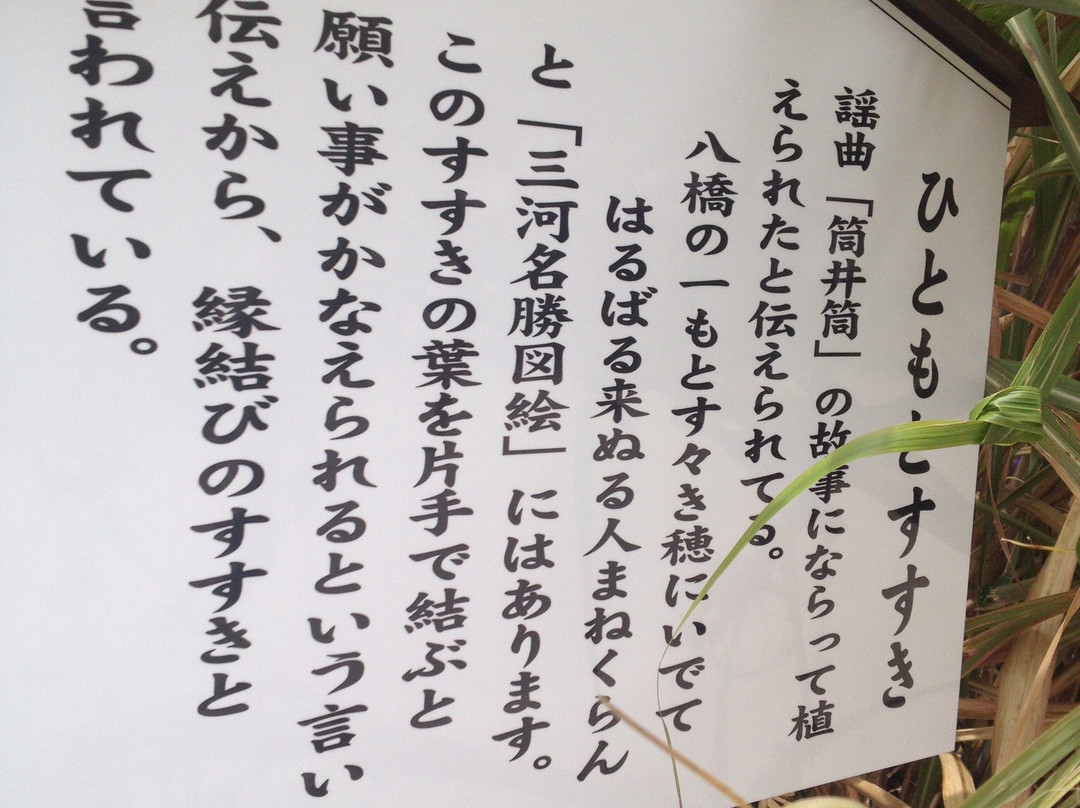 ひともとすすき
謡曲「筒井筒」の故事にならって植
えられたと伝えられてる。
八橋の一もとす々き穂にいでて
はるばる来ぬる人まねくらん
と「三河名勝図絵」にはあります。
このすすきの葉を片手で結ぶと
願い事がかなえられるという言い
伝えから、縁結びのすすきと
言われている。